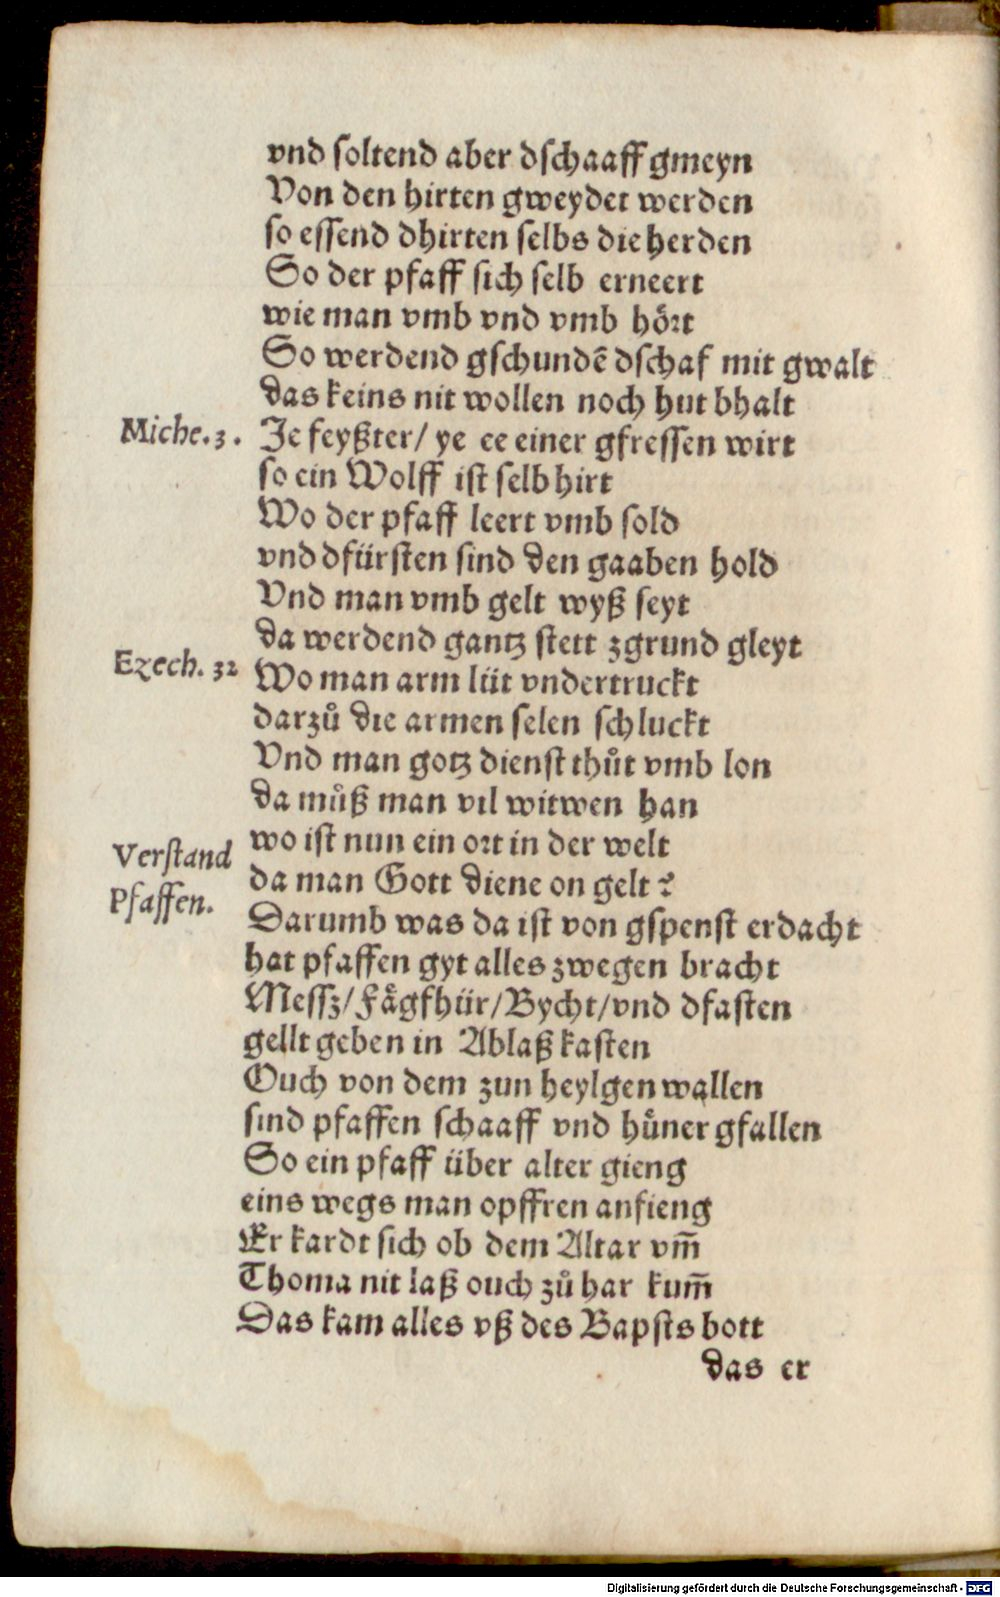 vnd soltend aber dschaaff gmeyn
Von den hirten gweydet werden
so essend dhirten selbs die herden
So der pfaff sich selb erneert
wie man vmb vnd vmb hoͤrt
So werdend gschundē dschaf mit gwalt
das keins nit wollen noch hut bhalt
Miche.3. Je feyßter/ ye ee einer gfressen wirt
so ein Wolff ist selb hirt
Wo der pfaff leert vmb sold
vnd dfürsten sind den gaaben hold
Vnd man vmb gelt wyß seyt
da werdend gantz stett zgrund gleyt
Ezech. 32 Wo man arm lüt vndertruckt
darzuͦ die armen selen schluckt
Vnd man gotz dienst thuͦt vmb lon
da muͦß man vil witwen han
Verstand wo ist nun ein ort in der welt
Pfaffen. da man Gott diene on gelt?
Darumb was da ist von gspenst erdacht
hat pfaffen gyt alles zwegen bracht
Messz/Faͤgfhür/Bycht/vnd dfasten
gellt geben in Ablaß kasten
Ouch von dem zun heylgen wallen
sind pfaffen schaaff vnd huͤner gfallen
So ein pfaff über alter gieng
eins wegs man opffren anfieng
Er kardt sich ob dem Altar vm̄
Thoma nit laß ouch zuͦ har kum̄
Das kam alles vß des Bapsts bott
das er
Digitalisierung gefördert durch die Deutsche Forschungsgemeinschaft - DFG